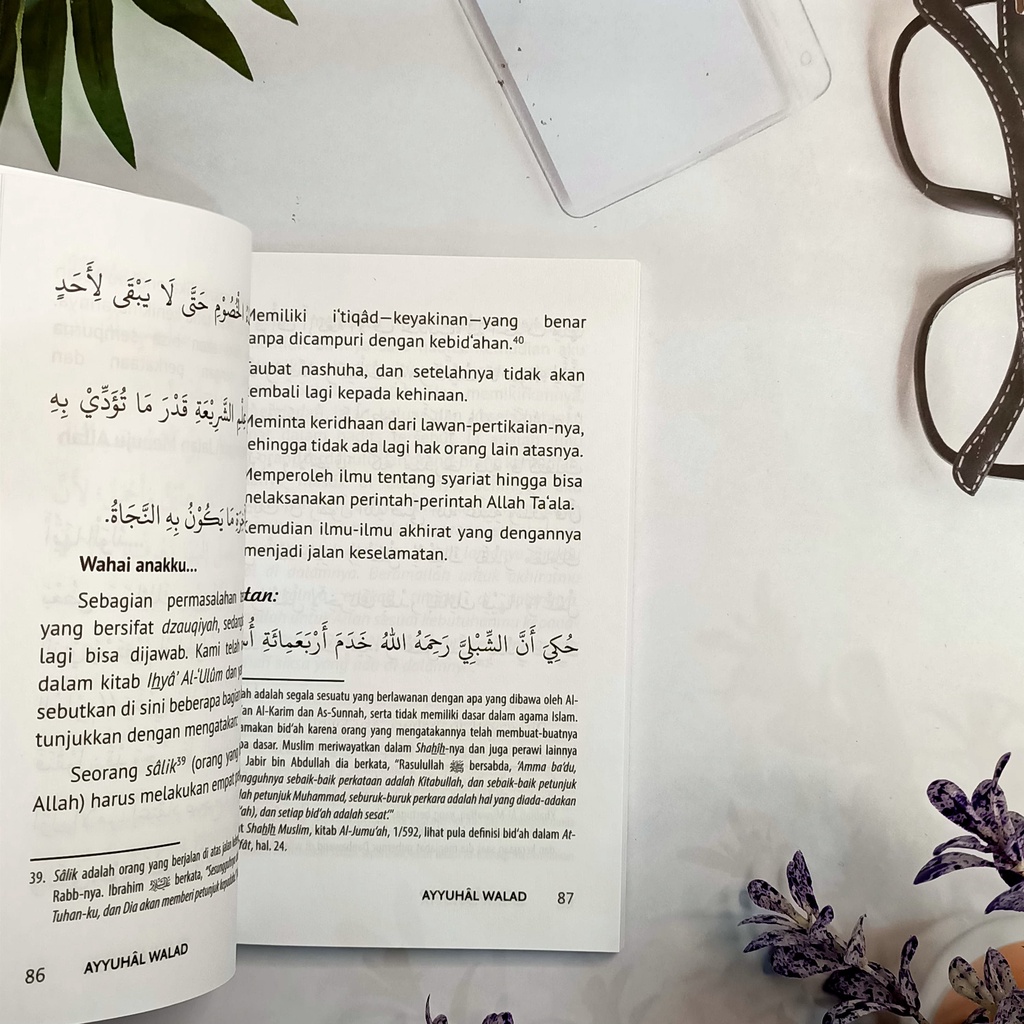 حَتَّى لَا يَبْقَى لِأَحَدٍ
الشَّرِيْعَةِ قَدْرَ مَا تُؤَدِّيْ بِهِ
مَا يَكُوْنُ بِهِ النَّجَاةُ.
Wahai anakku...
Sebagian permasalahan
yang bersifat dzauqiyah,
lagi bisa dijawab. Kami telah
dalam kitab Ihyâ' Al-'Ulûm dan
sebutkan di sini beberapa
tunjukkan dengan mengatakan:
Seorang sâlik³⁹ (orang yang
Allah) harus melakukan empat
39. Sâlik adalah orang yang berjalan di atas jalan
Rabb-nya. Ibrahim berkata,
Tuhan-ku, dan Dia akan memberi petunjuk
86 AYYUHÂL WALAD
Memiliki i'tiqâd—keyakinan—yang benar
dicampuri dengan kebid'ahan.⁴⁰
nashuha, dan setelahnya tidak akan
lagi kepada kehinaan.
Meminta keridhaan dari lawan-pertikaian-nya,
tidak ada lagi hak orang lain atasnya.
Memperoleh ilmu tentang syariat hingga bisa
perintah-perintah Allah Ta'ala.
ilmu-ilmu akhirat yang dengannya
menjadi jalan keselamatan.
حُكِيَ أَنَّ الشِّبْلِيَّ رَحِمَهُ اللهُ خَدَمَ أَرْبَعَمِائَةِ
adalah segala sesuatu yang berlawanan dengan apa yang dibawa oleh Al-
Al-Karim dan As-Sunnah, serta tidak memiliki dasar dalam agama Islam.
bid'ah karena orang yang mengatakannya telah membuat-buatnya
dasar. Muslim meriwayatkan dalam Shahîh-nya dan juga perawi lainnya
Jabir bin Abdullah dia berkata, "Rasulullah ﷺ bersabda, 'Amma ba'du,
sebaik-baik perkataan adalah Kitabullah, dan sebaik-baik petunjuk
petunjuk Muhammad, seburuk-buruk perkara adalah hal yang diada-adakan
dan setiap bid'ah adalah sesat'."
Shahîh Muslim, kitab Al-Jumu'ah, 1/592, lihat pula definisi bid'ah dalam At-
hal. 24.
AYYUHÂL WALAD 87